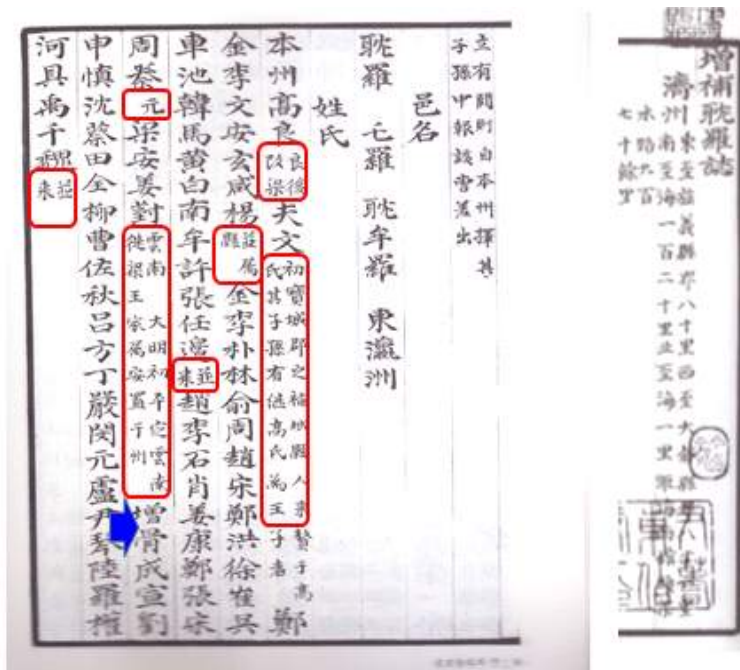 增補耽羅誌
濟州東至旌義縣界八十里西至大靜縣界八十
南至海一百二十里北至海一里
水路九百
七十餘里
立有闕則自本州擇其
子孫申報該曹差出
邑名
耽羅 乇羅 耽牟羅 東瀛洲
姓氏
本州高良良後改梁夫文初寶城郡之福城縣人來贅于高氏其子孫有継高氏為王子者鄭
金李文安玄咸楊並屬縣金李朴林俞周趙宋鄭洪徐崔吳
車池韓馬黃白南牟許張任邊並來趙李石肖姜康鄭張宋
周秦元梁安姜對雲南 大明初平定雲南徙梁王家属安置于州增骨成宣劉
申慎沈蔡田全柳曹佐秋呂方丁嚴閔元盧尹琴陸羅權
河具禹千魏並來